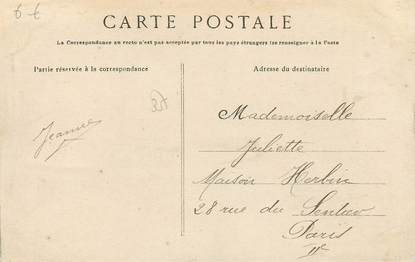 6 €
CARTE POSTALE
La Correspondance au recto n'est pas acceptée par tous les pays étrangers (se renseigner à la Poste
Partie réservée à la correspondance
Adresse du destinataire
Jeanne
Mademoiselle
Juliette
Maison Herbin
28 rue du Sentier
Paris
IIe